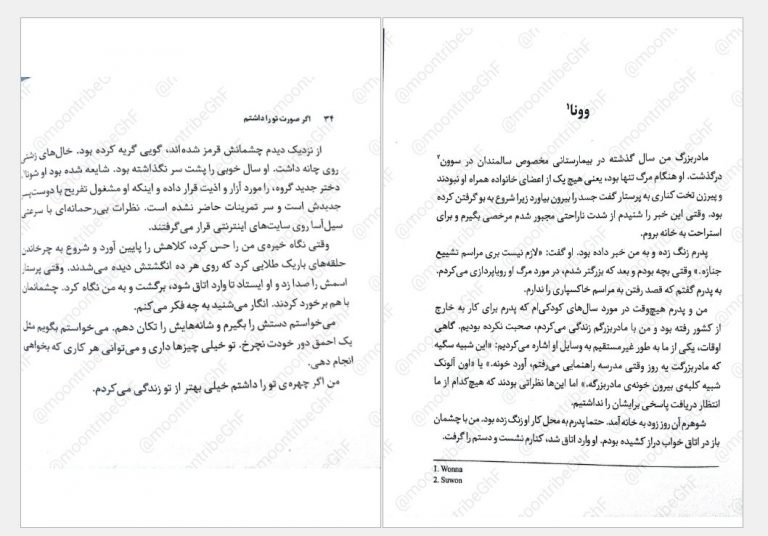 ۳۴ اگر صورت تو را داشتم
از نزدیک دیدم چشمانش قرمز شده‌اند، گویی گریه کرده بود. خال‌های زشتی
روی چانه داشت. او سال خوبی را پشت سر نگذاشته بود. شایعه شده بود او شونا،
دختر جدید گروه، را مورد آزار و اذیت قرار داده و اینکه او مشغول تفریح با دوست‌پسر
جدیدش است و سر تمرینات حاضر نشده است. نظرات بی‌رحمانه‌ای با سرعتی
سیل‌آسا روی سایت‌های اینترنتی قرار می‌گرفتند.
وقتی نگاه خیره‌ی من را حس کرد، کلاهش را پایین آورد و شروع به چرخاندن
حلقه‌های باریک طلایی کرد که روی هر ده انگشتش دیده می‌شدند. وقتی پرستار
اسمش را صدا زد و او ایستاد تا وارد اتاق شود، برگشت و به من نگاه کرد. چشمانمان
با هم برخورد کردند. انگار می‌شنید به چه فکر می‌کنم.
می‌خواستم دستش را بگیرم و شانه‌هایش را تکان دهم. می‌خواستم بگویم مثل
یک احمق دور خودت نچرخ. تو خیلی چیزها داری و می‌توانی هر کاری که بخواهی
انجام دهی.
من اگر چهره‌ی تو را داشتم خیلی بهتر از تو زندگی می‌کردم.
وونا۱
مادربزرگ من سال گذشته در بیمارستانی مخصوص سالمندان در سوون۲
درگذشت. او هنگام مرگ تنها بود، یعنی هیچ یک از اعضای خانواده همراه او نبودند
و پیرزن تخت کناری به پرستار گفت جسد را بیرون بیاورد زیرا شروع به بو گرفتن کرده
بود. وقتی این خبر را شنیدم از شدت ناراحتی مجبور شدم مرخصی بگیرم و برای
استراحت به خانه بروم.
پدرم زنگ زده و به من خبر داده بود. او گفت: «لازم نیست بری مراسم تشییع
جنازه.» وقتی بچه بودم و بعد که بزرگتر شدم، در مورد مرگ او رویاپردازی می‌کردم.
به پدرم گفتم که قصد رفتن به مراسم خاکسپاری را ندارم.
من و پدرم هیچ‌وقت در مورد سال‌های کودکی‌ام که پدرم برای کار به خارج
از کشور رفته بود و من با مادربزرگم زندگی می‌کردم، صحبت نکرده بودیم. گاهی
اوقات، یکی از ما به طور غیرمستقیم به وسایل او اشاره می‌کردیم: «این شبیه سگیه
که مادربزرگت یه روز وقتی مدرسه راهنمایی می‌رفتم، آورد خونه.» یا «اون آلونک
شبیه کلبه‌ی بیرون خونه‌ی مادربزرگه.» اما این‌ها نظراتی بودند که هیچ‌کدام از ما
انتظار دریافت پاسخی برایشان را نداشتیم.
شوهرم آن روز زود به خانه آمد. حتما پدرم به محل کار او زنگ زده بود. من با چشمان
باز در اتاق خواب دراز کشیده بودم. او وارد اتاق شد، کنارم نشست و دستم را گرفت.
1. Wonna
2. Suwon
@moontribeGhF